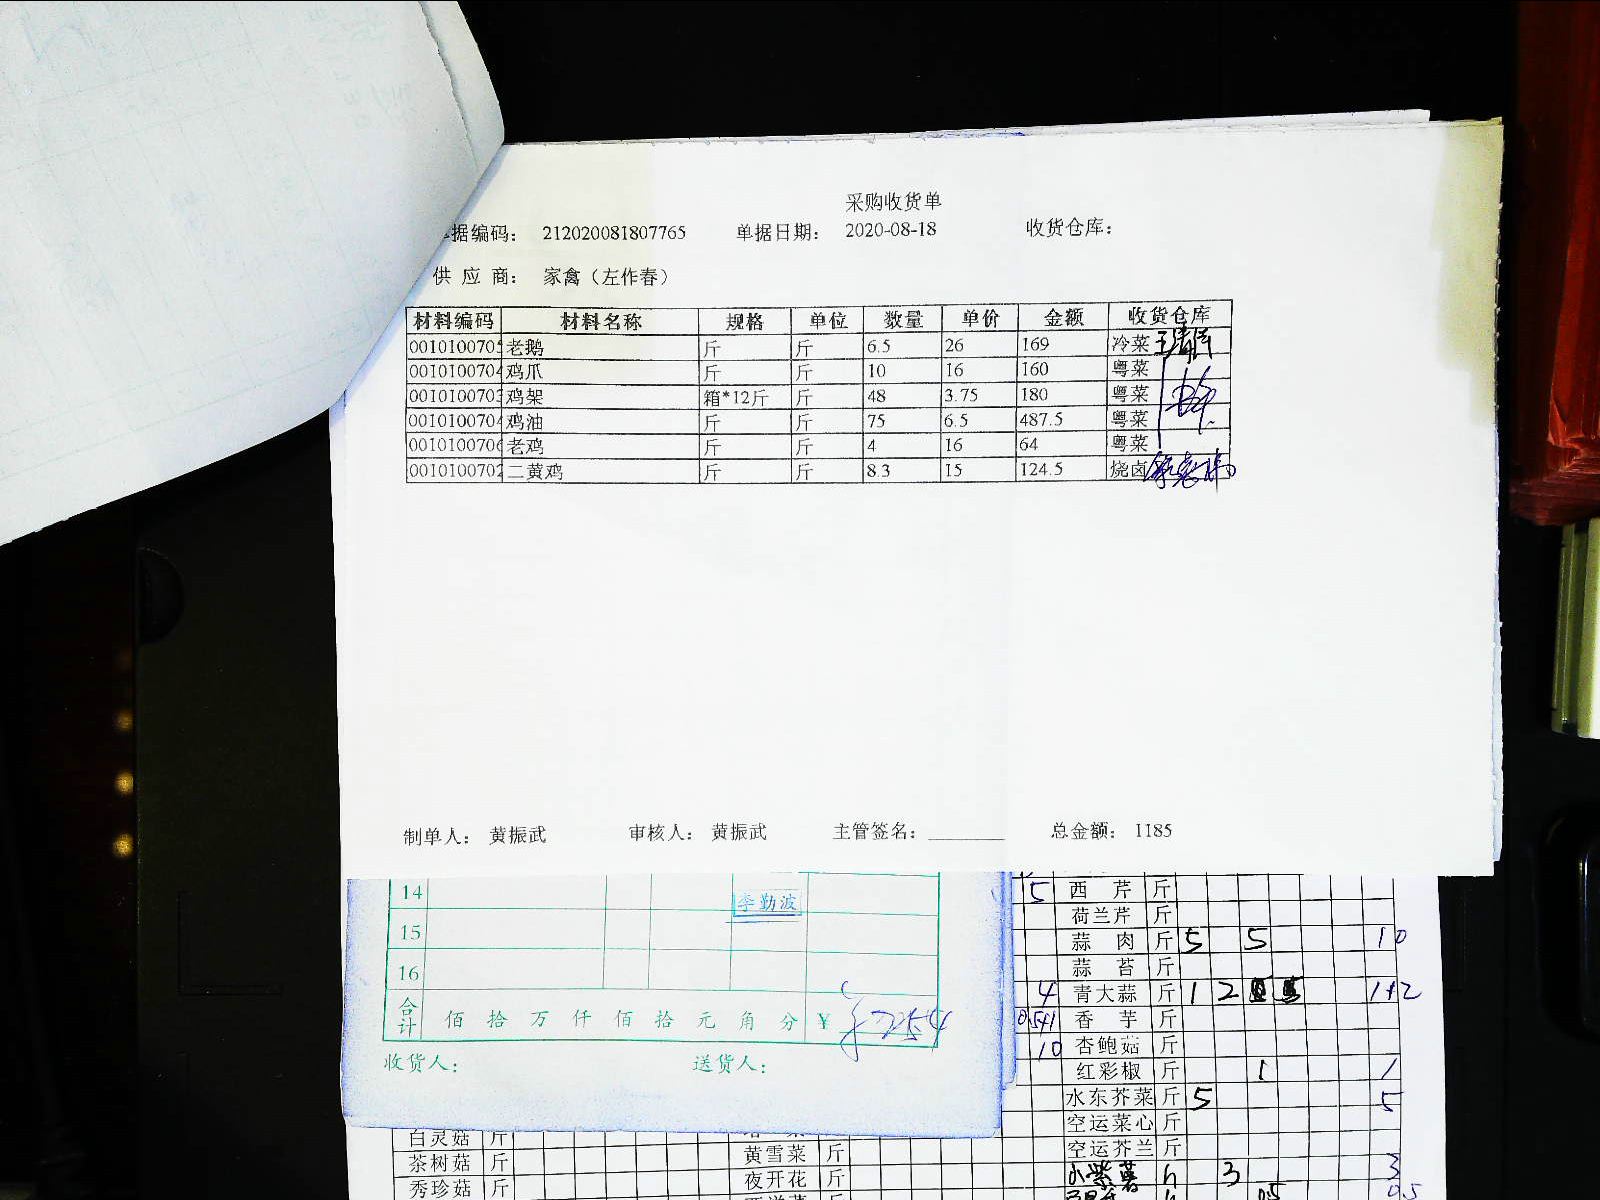 采购收货单
据编码： 212020081807765 单据日期： 2020-08-18 收货仓库：
供 应 商： 家禽（左作春）
材料编码 材料名称 规格 单位 数量 单价 金额 收货仓库
0010100705 老鹅 斤 斤 6.5 26 169 冷菜
0010100704 鸡爪 斤 斤 10 16 160 粤菜
0010100703 鸡架 箱*12斤 斤 48 3.75 180 粤菜
0010100704 鸡油 斤 斤 75 6.5 487.5 粤菜
0010100706 老鸡 斤 斤 4 16 64 粤菜
0010100702 二黄鸡 斤 斤 8.3 15 124.5 烧卤
制单人： 黄振武 审核人： 黄振武 主管签名： 总金额： 1185
14 李勤波
15
16
合计 佰 拾 万 仟 佰 拾 元 角 分 ￥
收货人： 送货人：
5 西芹 斤
荷兰芹 斤
蒜肉 斤 5 5 10
蒜苔 斤
4 青大蒜 斤 1 2 1+2
香芋 斤
10 杏鲍菇 斤
红彩椒 斤 1 1
水东芥菜 斤 5 5
空运菜心 斤
空运芥兰 斤
小紫薯 3 3
白灵菇 斤
茶树菇 斤 黄雪菜 斤
秀珍菇 斤 夜开花 斤
0.5 0.5